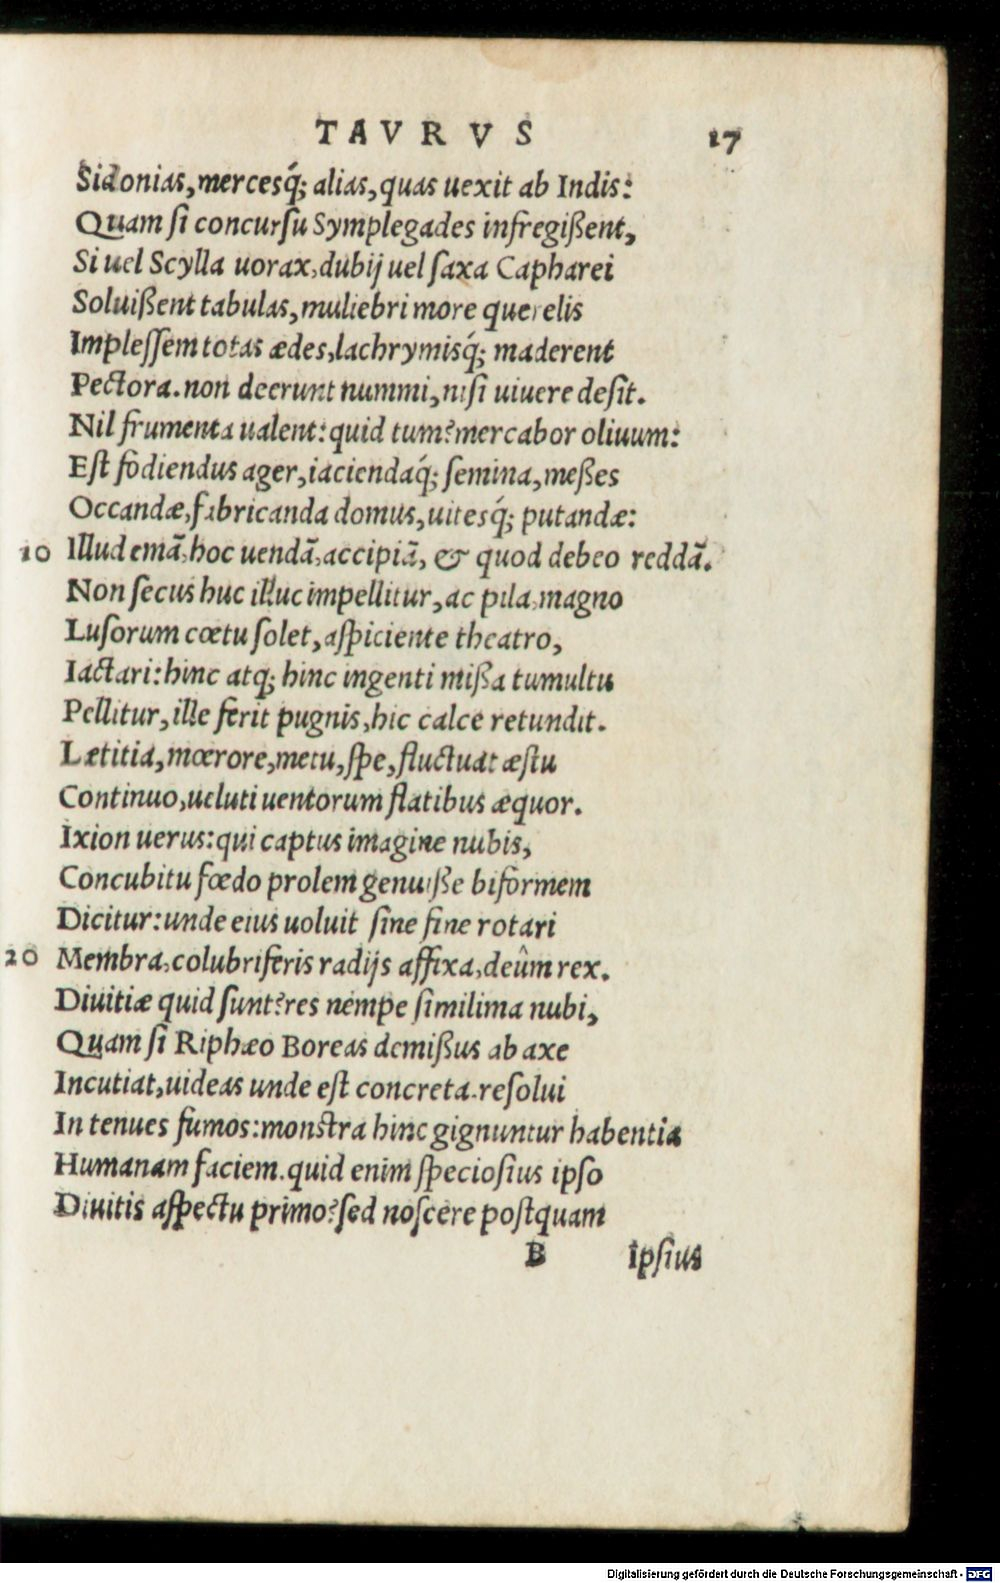 TAVRVS 17
Sidonias, mercesq́; alias, quas uexit ab Indis:
Quam ſi concurſu Symplegades infregißent,
Si uel Scylla uorax, dubij uel ſaxa Capharei
Soluißent tabulas, muliebri more querelis
Impleſſem totas ædes, lachrymisq́; maderent
Pectora. non deerunt nummi, niſi uiuere deſit.
Nil frumenta ualent: quid tum? mercabor oliuum:
Eſt fodiendus ager, iaciendaq́; ſemina, meßes
Occandæ, fabricanda domus, uitesq́; putandæ:
10 Illud emā, hoc uendā, accipiā, & quod debeo reddā.
Non ſecus huc illuc impellitur, ac pila, magno
Luſorum cœtu ſolet, aſpiciente theatro,
Iactari: hinc atq; hinc ingenti mißa tumultu
Pellitur, ille ferit pugnis, hic calce retundit.
Lætitia, mœrore, metu, ſpe, fluctuat æſtu
Continuo, ueluti uentorum flatibus æquor.
Ixion uerus: qui captus imagine nubis,
Concubitu fœdo prolem genuiße biformem
Dicitur: unde eius uoluit ſine fine rotari
20 Membra, colubriferis radijs affixa, deûm rex.
Diuitiæ quid ſunt? res nempe ſimilima nubi,
Quam ſi Riphæo Boreas demißus ab axe
Incutiat, uideas unde eſt concreta. reſolui
In tenues fumos: monstra hinc gignuntur habentia
Humanam faciem. quid enim ſpecioſius ipſo
Diuitis aſpectu primo? ſed noſcere poſtquam
B ipſius
Digitalisierung gefördert durch die Deutsche Forschungsgemeinschaft - DFG